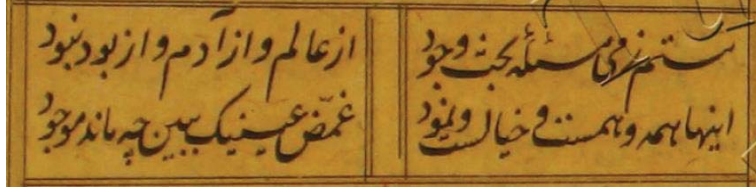 مسئله بحث وجود
از عالم و از آدم و از بود نبود
اینها همه وهمست و خیالست و نمود
غمّض عینیک ببین چه ماند موجود